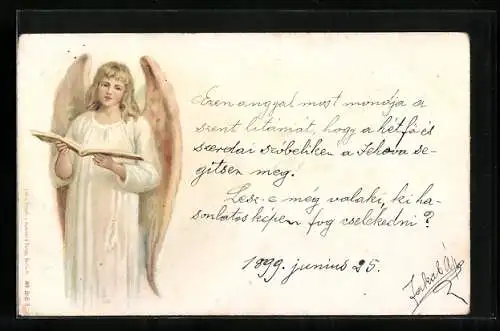 Ezen angyal most mondja a
szent litániát, hogy a hétfő és
szerdai szóbeliken a Jehova se-
gítsen meg.
Lesz-e még valaki, ki ha-
sonlatosképen fog cselekedni?
1899. junius 25.